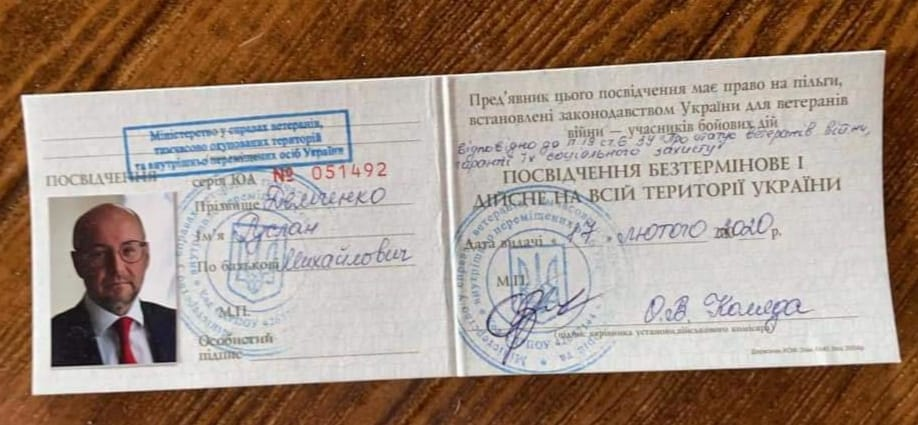 Міністерство у справах ветеранів,
тимчасово окупованих територій
та внутрішньо переміщених осіб України
ПОСВІДЧЕННЯ серія ЮА № 051492
Прізвище Демченко
Ім'я Руслан
По батькові Михайлович
М.П.
Особистий
підпис
Пред'явник цього посвідчення має право на пільги,
встановлені законодавством України для ветеранів
війни — учасників бойових дій
відповідно до п. 19 ст. 6 ЗУ "Про статус ветеранів війни,
гарантії їх соціального захисту"
ПОСВІДЧЕННЯ БЕЗТЕРМІНОВЕ І
ДІЙСНЕ НА ВСІЙ ТЕРИТОРІЇ УКРАЇНИ
Дата видачі « 17 » лютого 2020 р.
М.П.
О.В. Коляда
(підпис керівника установи, військового комісара)